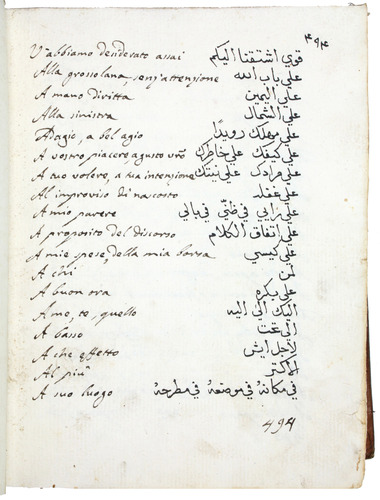 ٤٩٤
V'abbiamo desiderato assai قوي اشتقنا اليكم
Alla grossolana, senz'attenzione علي باب الله
A mano diritta علي اليمين
Alla sinistra علي الشمال
Adagio, a bel agio علي مهلك رويدًا
A vostro piacere, a gusto vr̃o علي كيفك علي خاطرك
A tuo volere, a tua intenzione علي مرادك علي نيتك
Al improviso di nascosto علي غفله
A mio parere علي رايي في ظنّي في بالي
A proposito del discorso علي اتفاق الكلام
A mie spese, della mia borsa علي كيسي
A chi لمن
A buon ora علي بكره
A me, te, quello اليك الي اليه
A basso الي تحت
A che effetto لاجل ايش
Al più الاكتر
A suo luogo في مكانهُ في موضعهُ في مطرحهُ
494